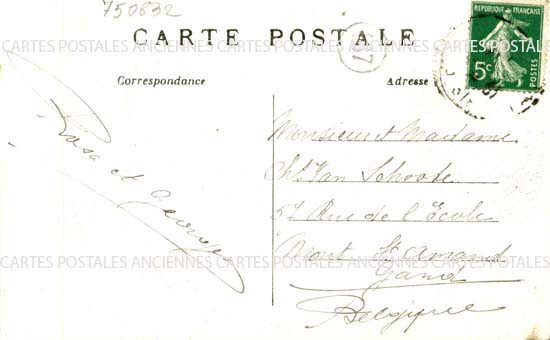 750832
CARTE POSTALE
Correspondance
Adresse
REPUBLIQUE FRANÇAISE
5c
POSTES
Rosa et Georges
Monsieur et Madame
Chs Van Schoote
57 Rue de l'Ecole
Mont St Amand
Gand
Belgique
CARTES POSTALES ANCIENNES CARTES POSTALES ANCIENNES CARTES POSTALES
CARTES POSTALES ANCIENNES CARTES POSTALES ANCIENNES CARTES POSTALES